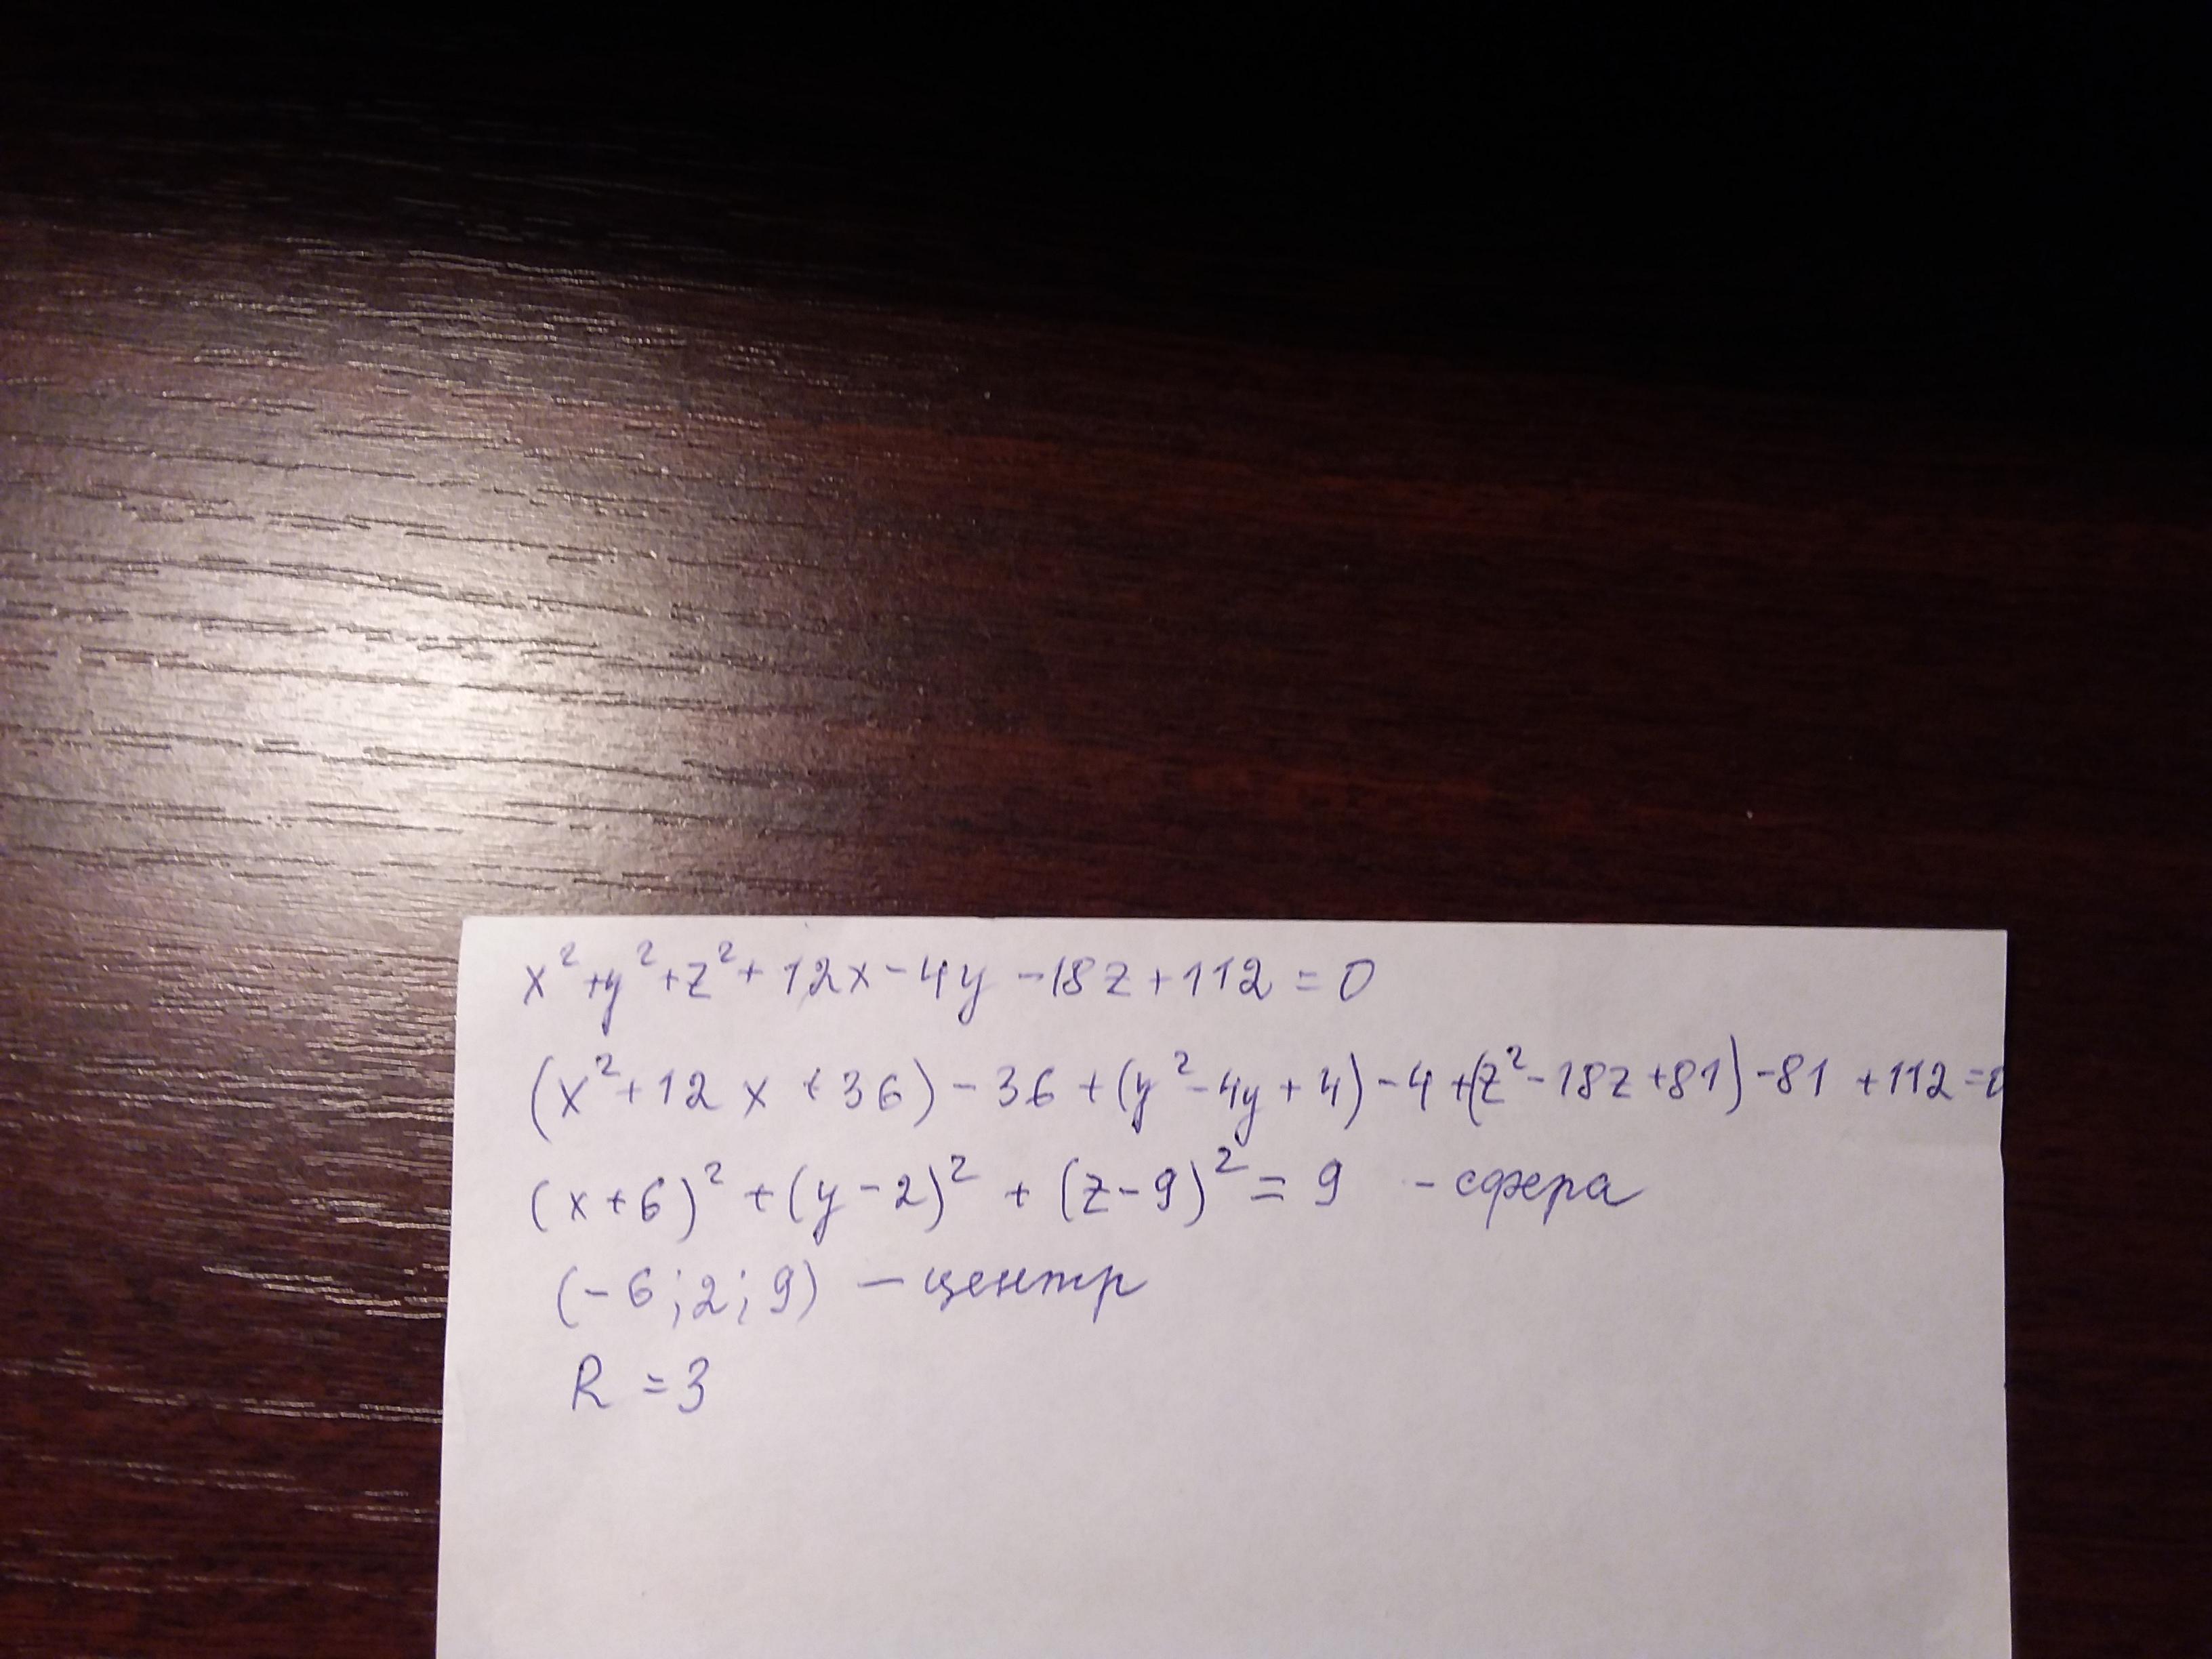 x²+y²+z²+12x-4y-18z+112=0
(x²+12x+36)-36+(y²-4y+4)-4+(z²-18z+81)-81+112=0
(x+6)²+(y-2)²+(z-9)²=9 - сфера
(-6;2;9) — центр
R=3